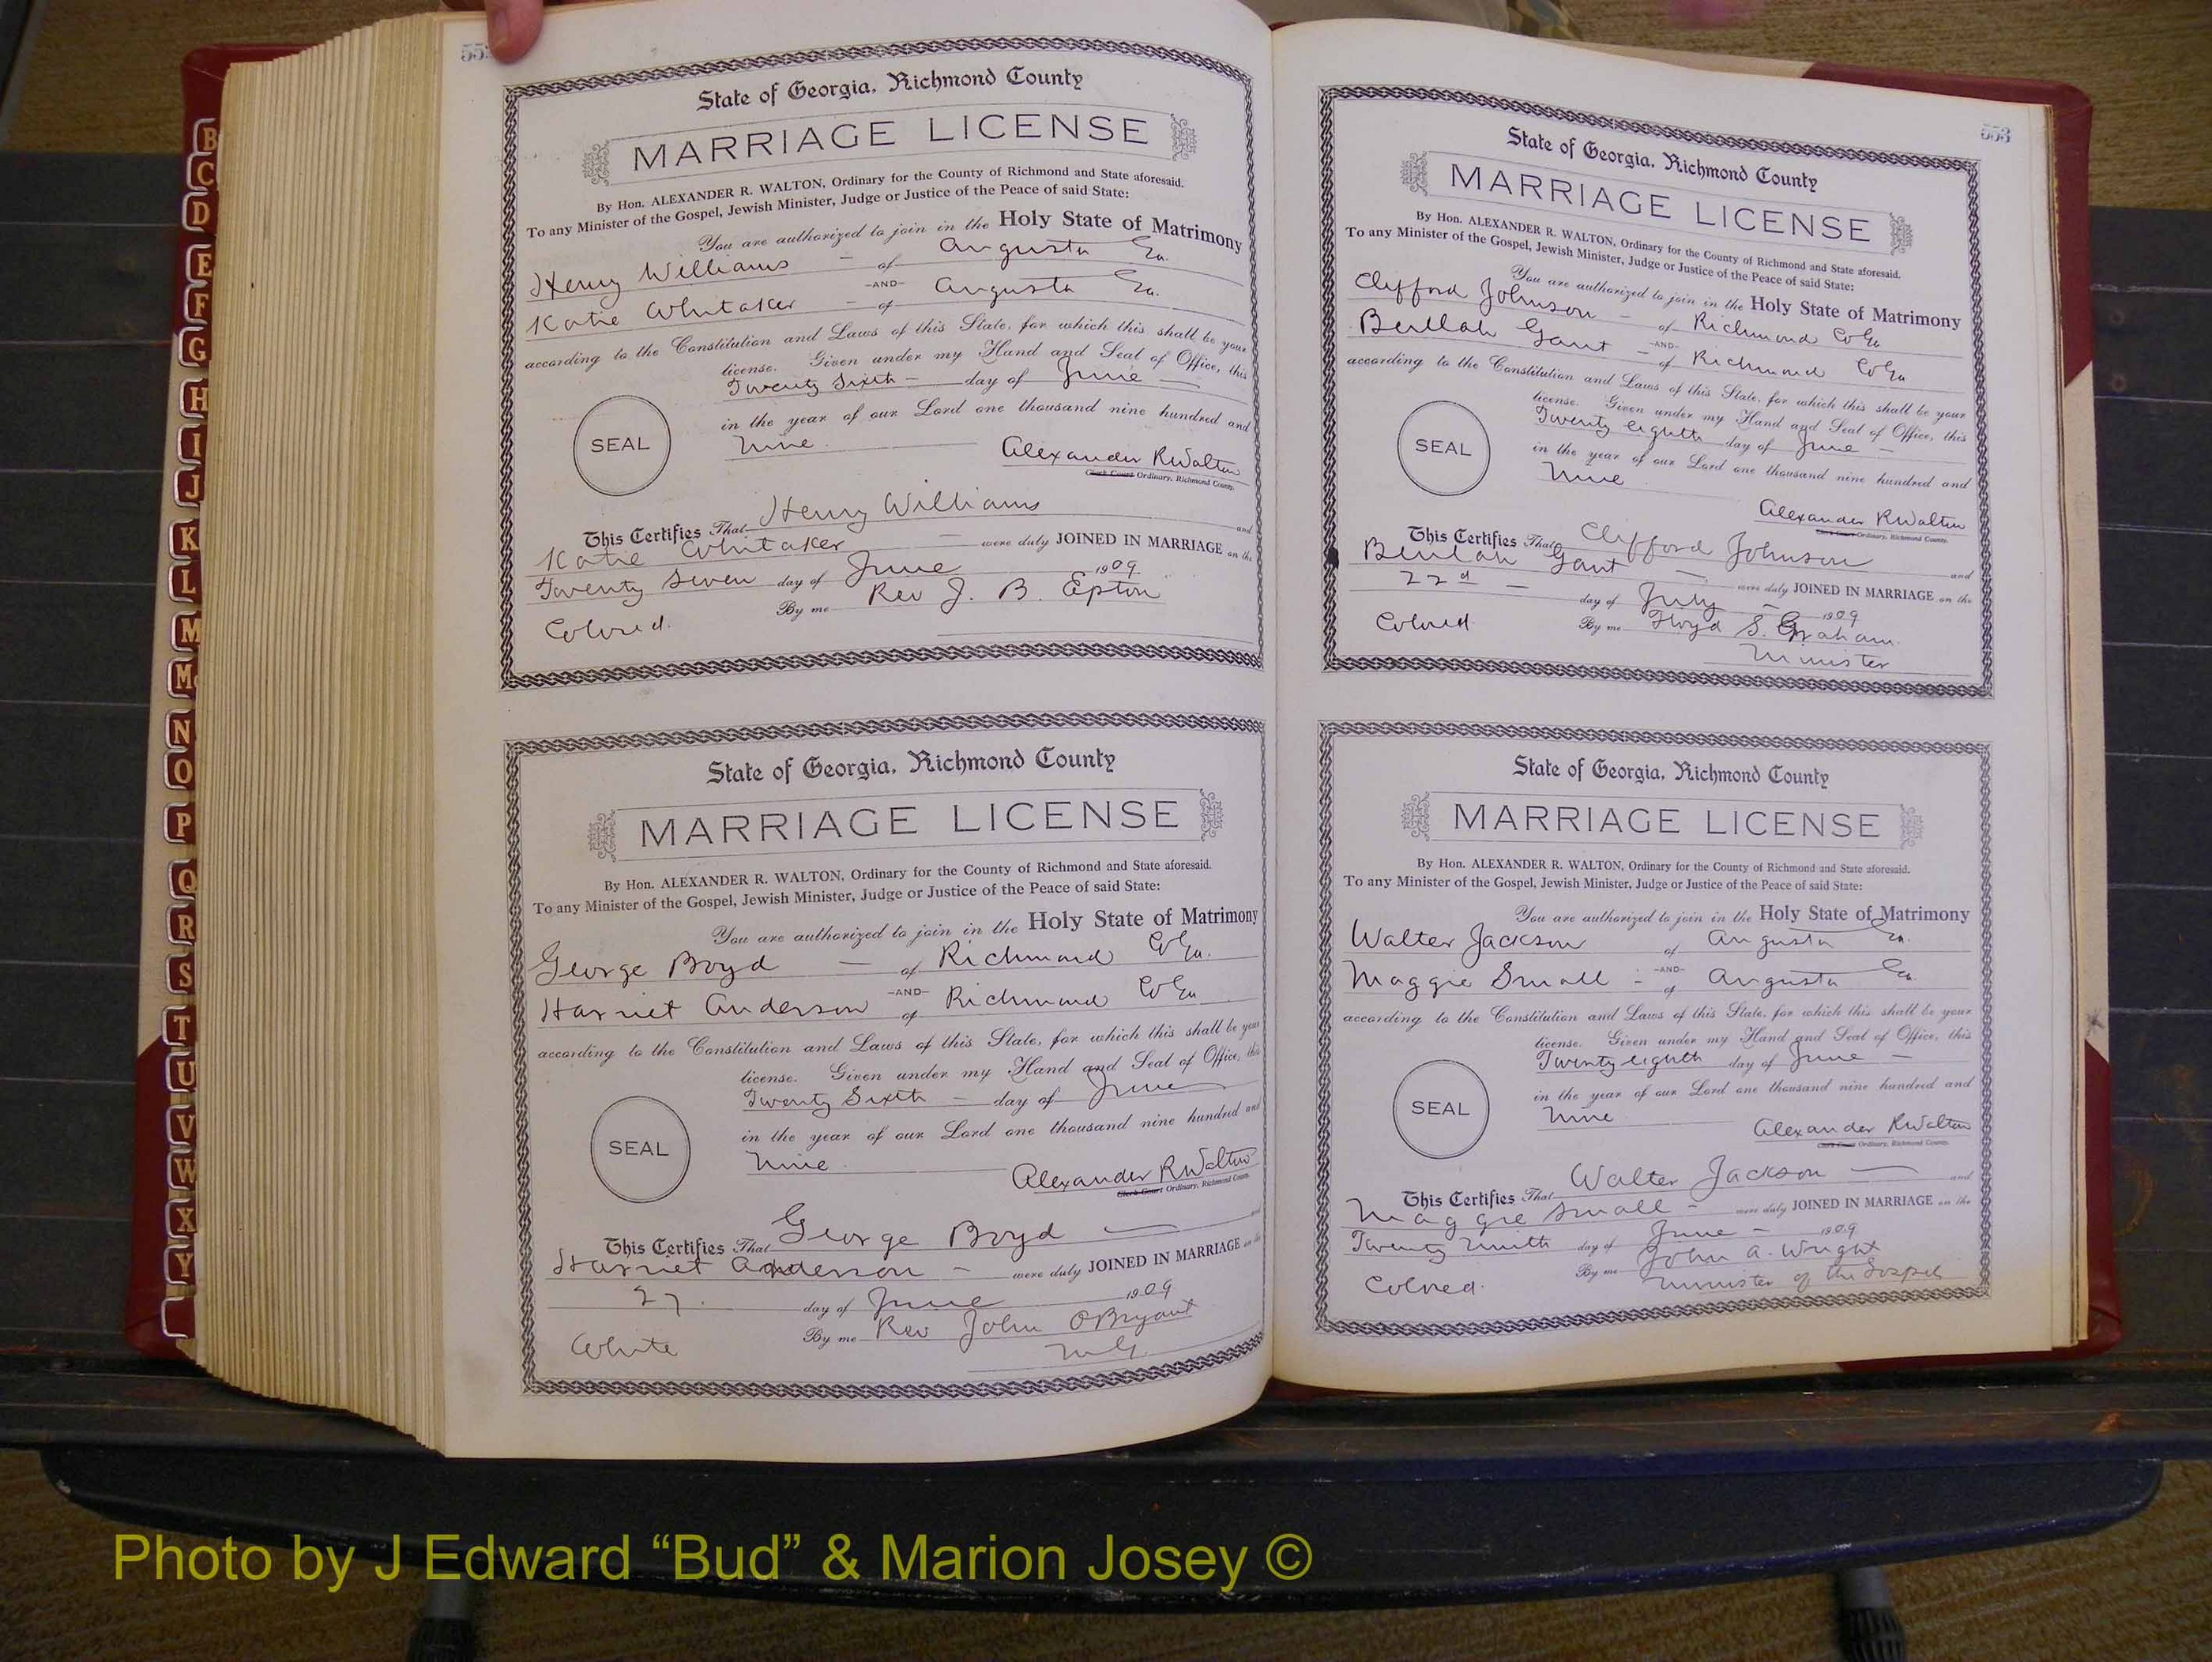 B
C
D
E
F
G
H
I
J
K
L
M
Mc
N
O
P
Q
R
S
T
U
V
W
X
Y
State of Georgia, Richmond County
MARRIAGE LICENSE
By Hon. ALEXANDER R. WALTON, Ordinary for the County of Richmond and State aforesaid.
To any Minister of the Gospel, Jewish Minister, Judge or Justice of the Peace of said State:
You are authorized to join in the Holy State of Matrimony
Henry Williams - of Augusta Ga.
-AND-
Katie Whitaker - of Augusta Ga.
according to the Constitution and Laws of this State, for which this shall be your
license. Given under my Hand and Seal of Office, this
Twenty Sixth - day of June -
in the year of our Lord one thousand nine hundred and
SEAL
Nine
Alexander R Walton
Clerk Court Ordinary, Richmond County.
This Certifies That Henry Williams and
Katie Whitaker - were duly JOINED IN MARRIAGE on the
Twenty Seven day of June 1909
By me Rev J. B. Epton
Colored.
State of Georgia, Richmond County
MARRIAGE LICENSE
By Hon. ALEXANDER R. WALTON, Ordinary for the County of Richmond and State aforesaid.
To any Minister of the Gospel, Jewish Minister, Judge or Justice of the Peace of said State:
You are authorized to join in the Holy State of Matrimony
George Boyd - of Richmond Co Ga.
-AND-
Harriet Anderson of Richmond Co Ga
according to the Constitution and Laws of this State, for which this shall be your
license. Given under my Hand and Seal of Office, this
Twenty Sixth - day of June
in the year of our Lord one thousand nine hundred and
SEAL
Nine.
Alexander R Walton
Clerk Court Ordinary, Richmond County.
This Certifies That George Boyd - and
Harriet Anderson - were duly JOINED IN MARRIAGE on the
27. day of June 1909
By me Rev John OBryant
White
M G
553
State of Georgia, Richmond County
MARRIAGE LICENSE
By Hon. ALEXANDER R. WALTON, Ordinary for the County of Richmond and State aforesaid.
To any Minister of the Gospel, Jewish Minister, Judge or Justice of the Peace of said State:
You are authorized to join in the Holy State of Matrimony
Clifford Johnson - of Richmond Co Ga
-AND-
Beullah Gant - of Richmond Co Ga
according to the Constitution and Laws of this State, for which this shall be your
license. Given under my Hand and Seal of Office, this
Twenty eighth day of June -
in the year of our Lord one thousand nine hundred and
SEAL
Nine
Alexander R Walton
Clerk Court Ordinary, Richmond County.
This Certifies That Clifford Johnson and
Beulah Gant - were duly JOINED IN MARRIAGE on the
22d - day of July - 1909
Colored By me Floyd S. Graham.
Minister
State of Georgia, Richmond County
MARRIAGE LICENSE
By Hon. ALEXANDER R. WALTON, Ordinary for the County of Richmond and State aforesaid.
To any Minister of the Gospel, Jewish Minister, Judge or Justice of the Peace of said State:
You are authorized to join in the Holy State of Matrimony
Walter Jackson of Augusta Ga.
-AND-
Maggie Small - of Augusta Ga.
according to the Constitution and Laws of this State, for which this shall be your
license. Given under my Hand and Seal of Office, this
Twenty eighth day of June -
in the year of our Lord one thousand nine hundred and
SEAL
Nine
Alexander R Walton
Clerk Court Ordinary, Richmond County.
This Certifies That Walter Jackson - and
Maggie Small - were duly JOINED IN MARRIAGE on the
Twenty Ninth day of June - 1909
By me John A. Wright
Colored. Minister of the Gospel
Photo by J Edward “Bud” & Marion Josey ©